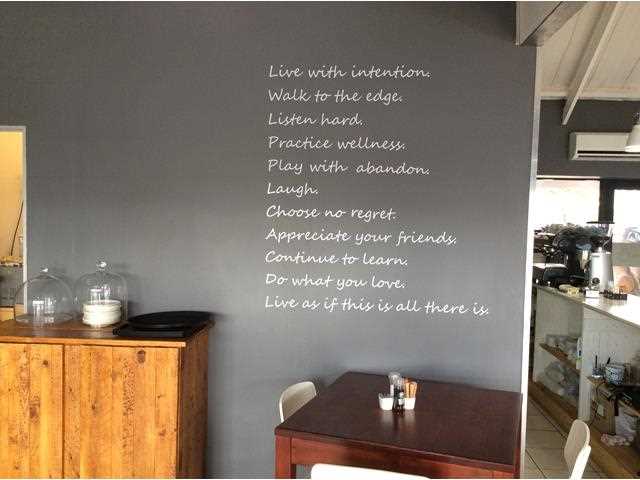 Live with intention.
Walk to the edge.
Listen hard.
Practice wellness.
Play with abandon.
Laugh.
Choose no regret.
Appreciate your friends.
Continue to learn.
Do what you love.
Live as if this is all there is.